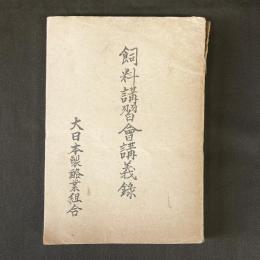 飼料講習會講義錄
大日本製酪業組合